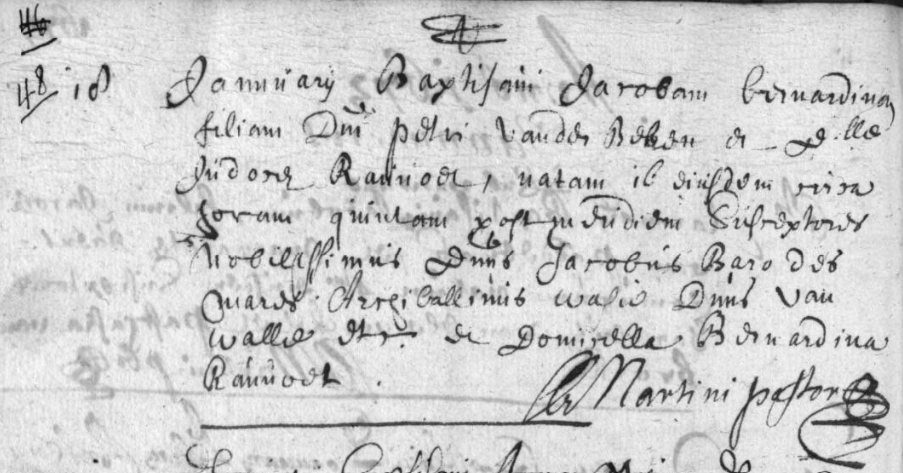 46
48 18 Januuarij Baptisaui Jacobam bernardinam
filiam Dni petri vander Beken et D:llae
Judocae Rauuoet, natam 16 eiusdem circa
horam quintam post meridiem Susceptores
Nobilissimus Dnus Jacobus Baro des
Mares Dnus van
Walle etc. et Domicella Bernardina
Rauuoet.
Martini pastor